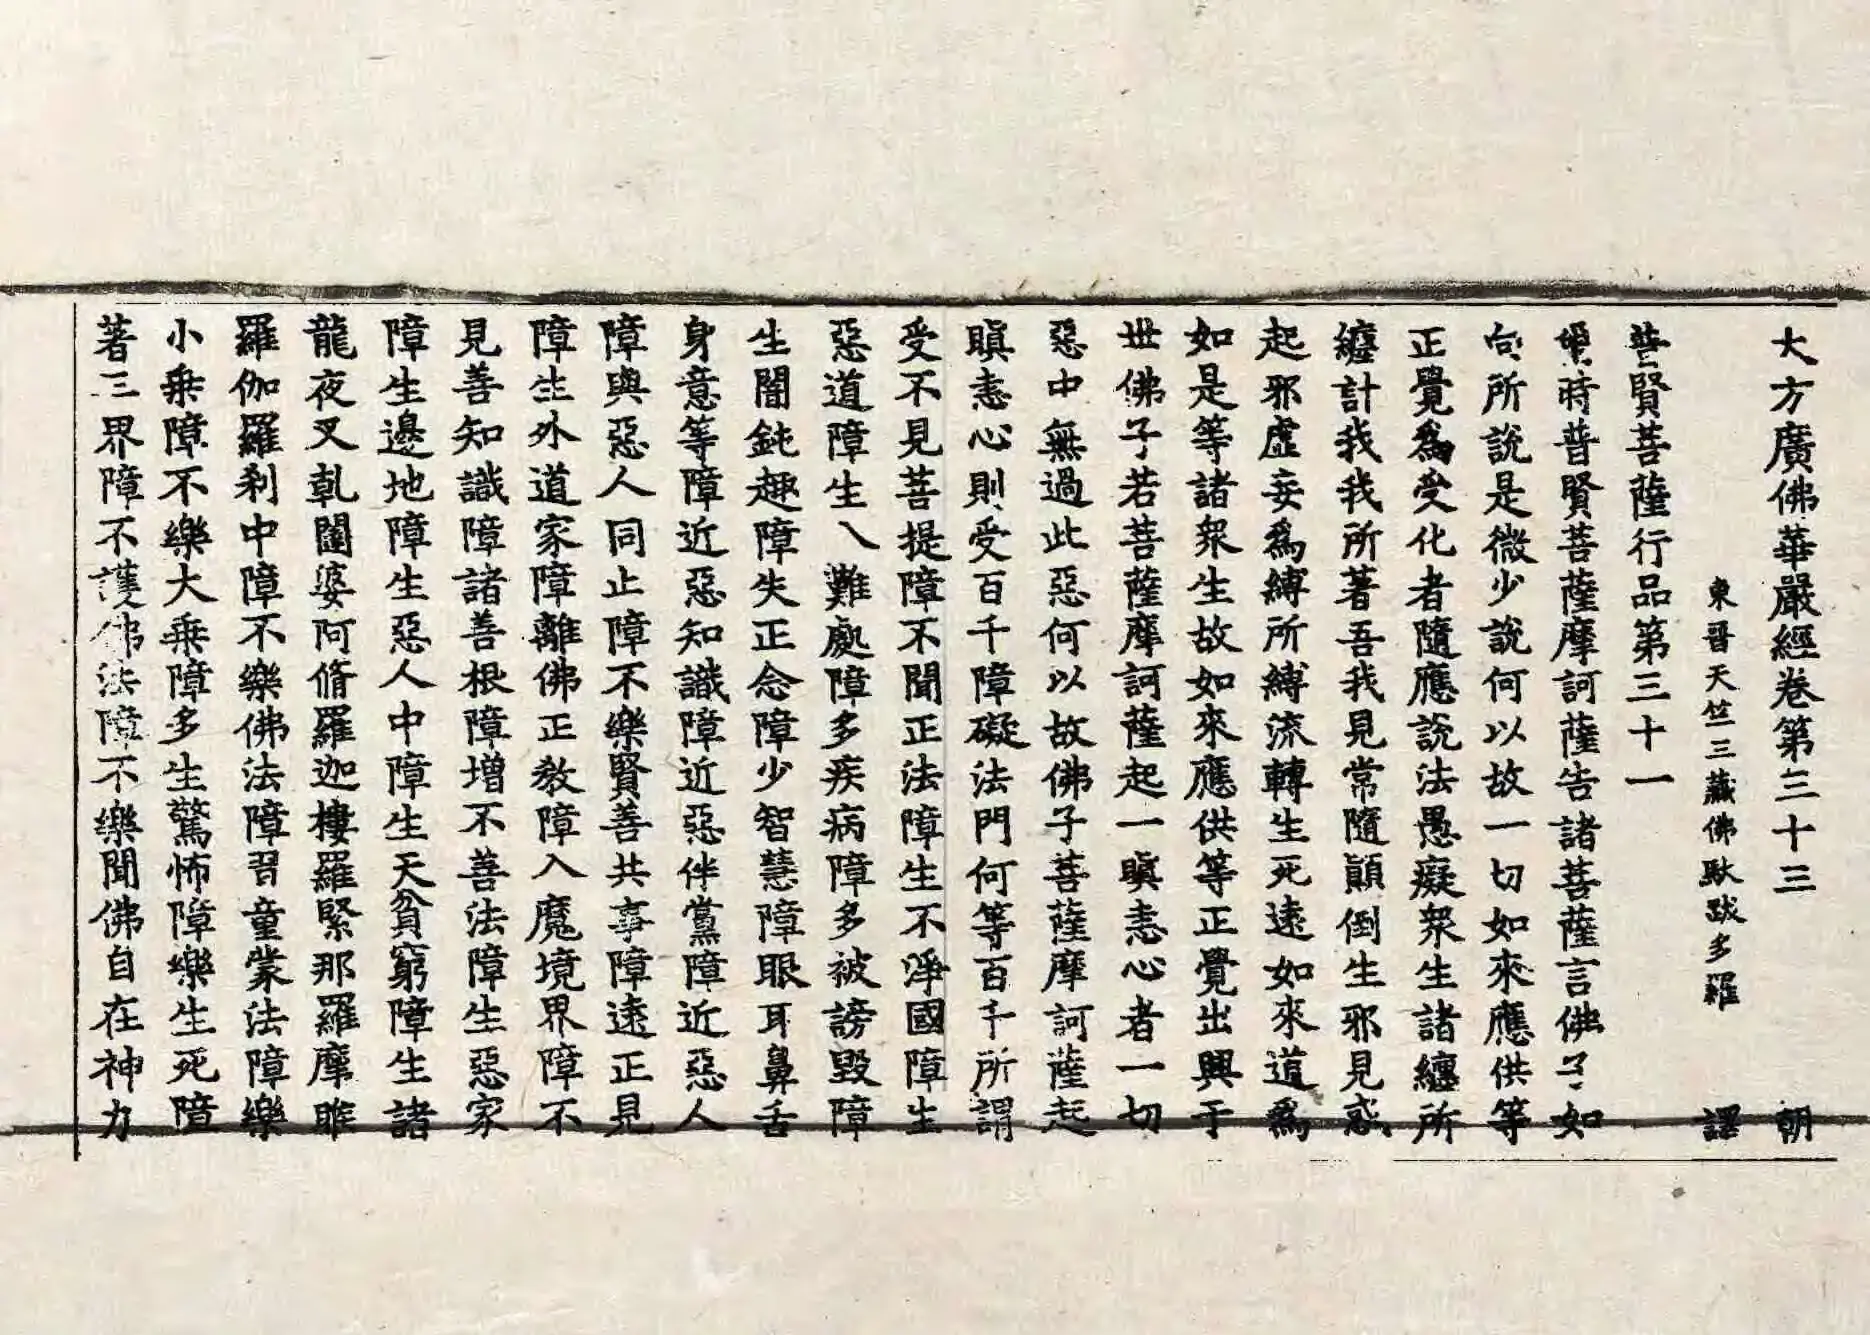 大方廣佛華嚴經卷第三十三 朝
東晉天竺三藏佛馱跋多羅 譯
普賢菩薩行品第三十一
爾時普賢菩薩摩訶薩告諸菩薩言佛子如
向所說是微少說何以故一切如來應供等
正覺為受化者隨應說法愚癡衆生諸纏所
纏計我我所著吾我見常隨顛倒生邪見惑
起邪虛妄為縛所縛流轉生死遠如來道為
如是等諸衆生故如來應供等正覺出興于
世佛子若菩薩摩訶薩起一瞋恚心者一切
惡中無過此惡何以故佛子菩薩摩訶薩起
瞋恚心則受百千障礙法門何等百千所謂
受不見菩提障不聞正法障生不淨國障生
惡道障生八難處障多疾病障多被謗毀障
生闇鈍趣障失正念障少智慧障眼耳鼻舌
身意等障近惡知識障近惡伴黨障近惡人
障與惡人同止障不樂賢善共事障遠正見
障生外道家障離佛正教障入魔境界障不
見善知識障諸善根障增不善法障生惡家
障生邊地障生惡人中障生天貧窮障生諸
龍夜叉乹闥婆阿脩羅迦樓羅緊那羅摩睺
羅伽羅刹中障不樂佛法障習童蒙法障樂
小乘障不樂大乘障多生驚怖障樂生死障
著三界障不護佛法障不樂聞佛自在神力